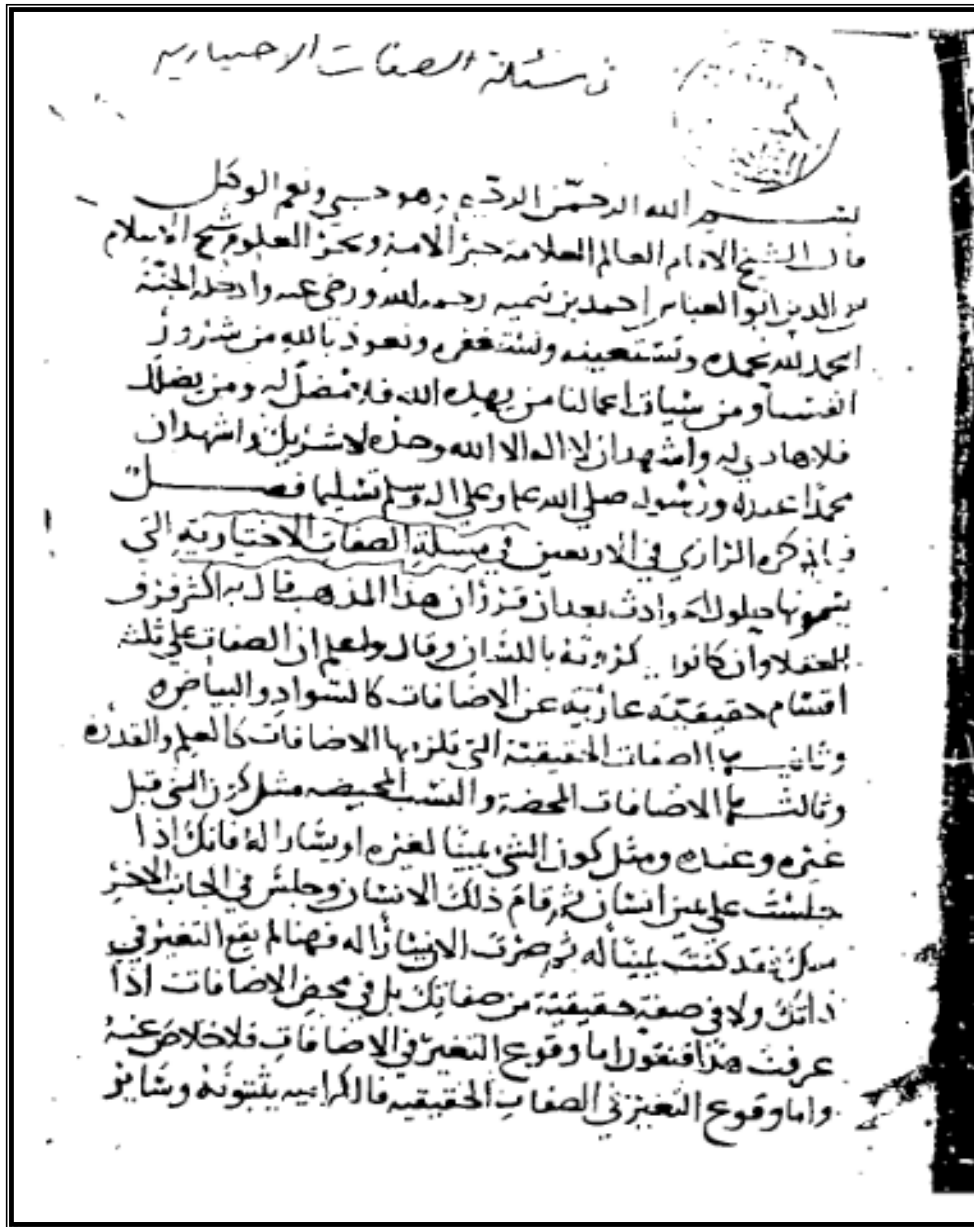 في مسئلة الصفات الاختياريه
بسم الله الرحمن الرحيم وهو حسبي ونعم الوكيل
قال الشيخ الامام العالم العلامة حبر الامة وبحر العلوم شيخ الاسلام
تقي الدين ابو العباس احمد بن تيميه رحمه الله ورضي عنه وادخله الجنة
الحمد لله نحمده ونستعينه ونستغفره ونعوذ بالله من شرور
انفسنا ومن سيات اعمالنا من يهده الله فلا مضل له ومن يضلل
فلا هادي له واشهد ان لا اله الا الله وحده لا شريك له واشهد ان
محمدا عبده ورسوله صلى الله عليه وعلى اله وسلم تسليما فصل
فيما ذكره الرازي في الاربعين في مسلة الصفات الاختياريه التي
يسمونها حلول الحوادث بعد ان قرر ان هذا المذهب قال به اكثر فرق
العقلا وان كانوا ينكرونه باللسان وقال واعلم ان الصفات على ثلثه
اقسام حقيقيه عاريه عن الاضافات كالسواد والبياض
وثانيها الصفات الحقيقية التي تلزمها الاضافات كالعلم والقدره
وثالثها الاضافات المحضة والنسب المحضه مثل كون الشي قبل
غيره وعنده ومثل كون الشي يمينا لغيره او يسارا له فانك اذا
جلست على يمين انسان ثم قام ذلك الانسان وجلس في الجانب الاخر
منك فقد كنت يمينا له ثم صرت الان يسارا له فهنا لم يقع التغير في
ذاتك ولا في صفة حقيقية من صفاتك بل في محض الاضافات اذا
عرفت هذا فنقول اما وقوع التغير في الاضافات فلا خلاص عنه
واما وقوع التغير في الصفات الحقيقيه فالكراميه يثبتونه وساير